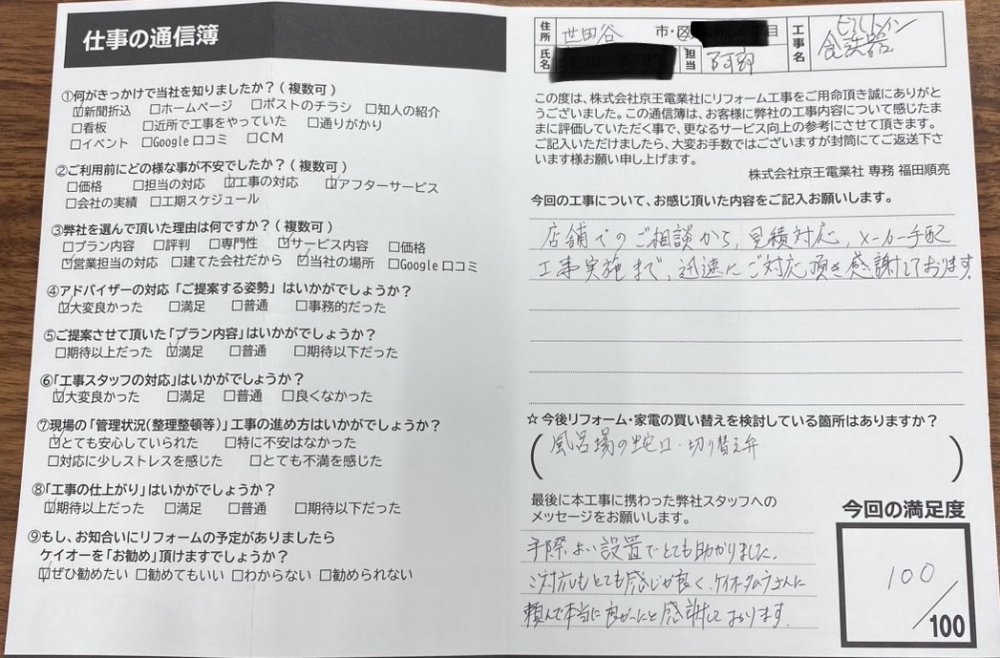 仕事の通信簿
①何がきっかけで当社を知りましたか?(複数可)
☑新聞折込 □ホームページ □ポストのチラシ □知人の紹介
□看板 □近所で工事をやっていた □通りがかり
□イベント □Google口コミ □CM
②ご利用前にどの様な事が不安でしたか?(複数可)
□価格 □担当の対応 ☑工事の対応 ☑アフターサービス
□会社の実績 □工期スケジュール
③弊社を選んで頂いた理由は何ですか?(複数可)
□プラン内容 □評判 □専門性 ☑サービス内容 □価格
☑営業担当の対応 □建てた会社だから ☑当社の場所 □Google口コミ
④アドバイザーの対応「ご提案する姿勢」はいかがでしょうか?
☑大変良かった □満足 □普通 □事務的だった
⑤ご提案させて頂いた「プラン内容」はいかがでしょうか?
□期待以上だった ☑満足 □普通 □期待以下だった
⑥「工事スタッフの対応」はいかがでしょうか?
☑大変良かった □満足 □普通 □良くなかった
⑦現場の「管理状況(整理整頓等)」工事の進め方はいかがでしょうか?
☑とても安心していられた □特に不満はなかった
□対応に少しストレスを感じた □とても不満を感じた
⑧「工事の仕上がり」はいかがでしょうか?
☑期待以上だった □満足 □普通 □期待以下だった
⑨もし、お知合いにリフォームの予定がありましたら
ケイオーを「お勧め」頂けますでしょうか?
☑ぜひ勧めたい □勧めてもいい □わからない □勧められない
住所 世田谷 市・区 目
氏名 担当
工事名 ビルトイン
食洗器
この度は、株式会社京王電業社にリフォーム工事をご用命頂き誠にありがと
うございました。この通信簿は、お客様に弊社の工事内容について感じたま
まに評価していただく事で、更なるサービス向上の参考にさせて頂きます。
ご記入いただけましたら、大変お手数ではございますが封筒にてご返送下さ
います様お願い申し上げます。
株式会社京王電業社 専務 福田順亮
今回の工事について、お感じ頂いた内容をご記入お願いします。
店舗でのご相談から、見積対応、メーカー手配
工事実施まで、迅速にご対応頂き感謝しております。
☆今後リフォーム・家電の買い替えを検討している箇所はありますか?
(風呂場の蛇口・切り替え弁)
最後に本工事に携わった弊社スタッフへの
メッセージをお願いします。
手際よい設置でとても助かりました。
ご対応もとても感じが良く、ケイオータムラさんに
頼んで本当に良かったと感謝しております。
今回の満足度
100
/100